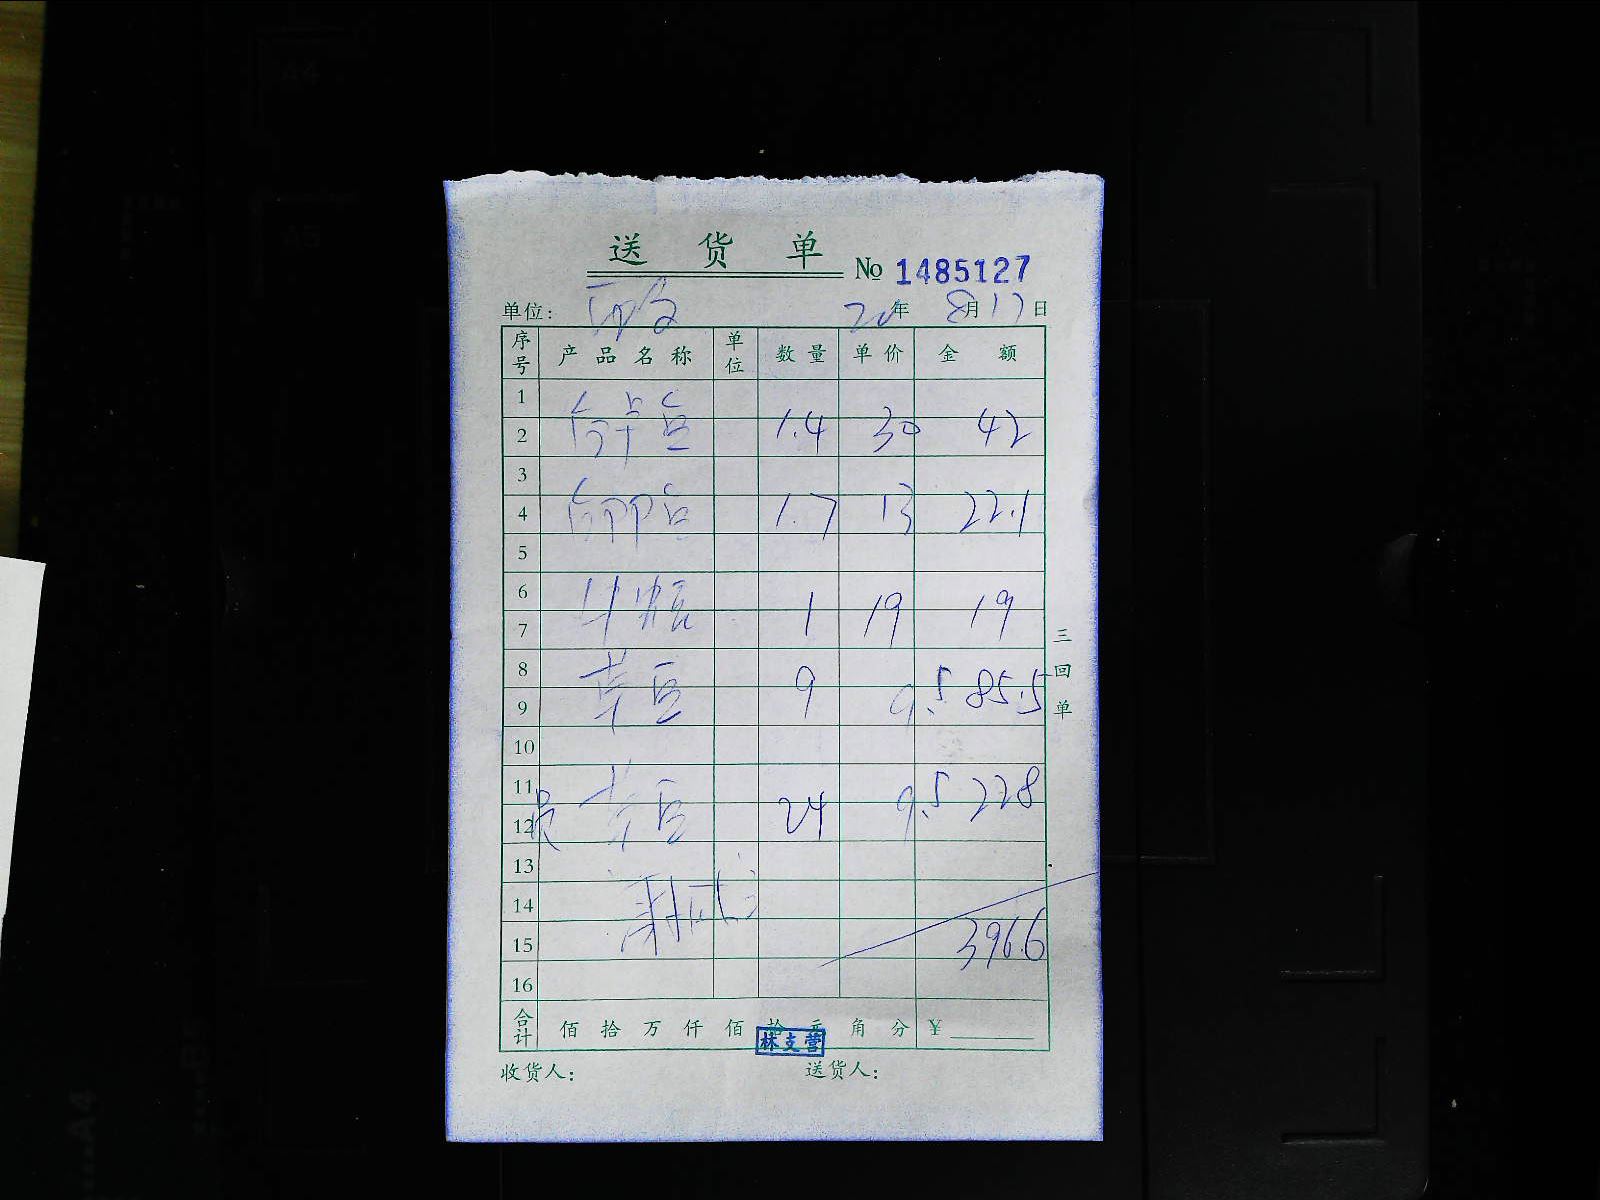 送 货 单
No 1485127
单位： 20年 8月17日
序号 产品名称 单位 数量 单价 金额
1
2 1.4 30 42
3
4 1.7 13 22.1
5
6
7 1 19 19
8
9 9 9.5 85.5
10
11
12 24 9.5 228
13
14
15 396.6
16
合计 佰 拾 万 仟 佰 拾 元 角 分 ¥
林支营
收货人： 送货人：
三回单